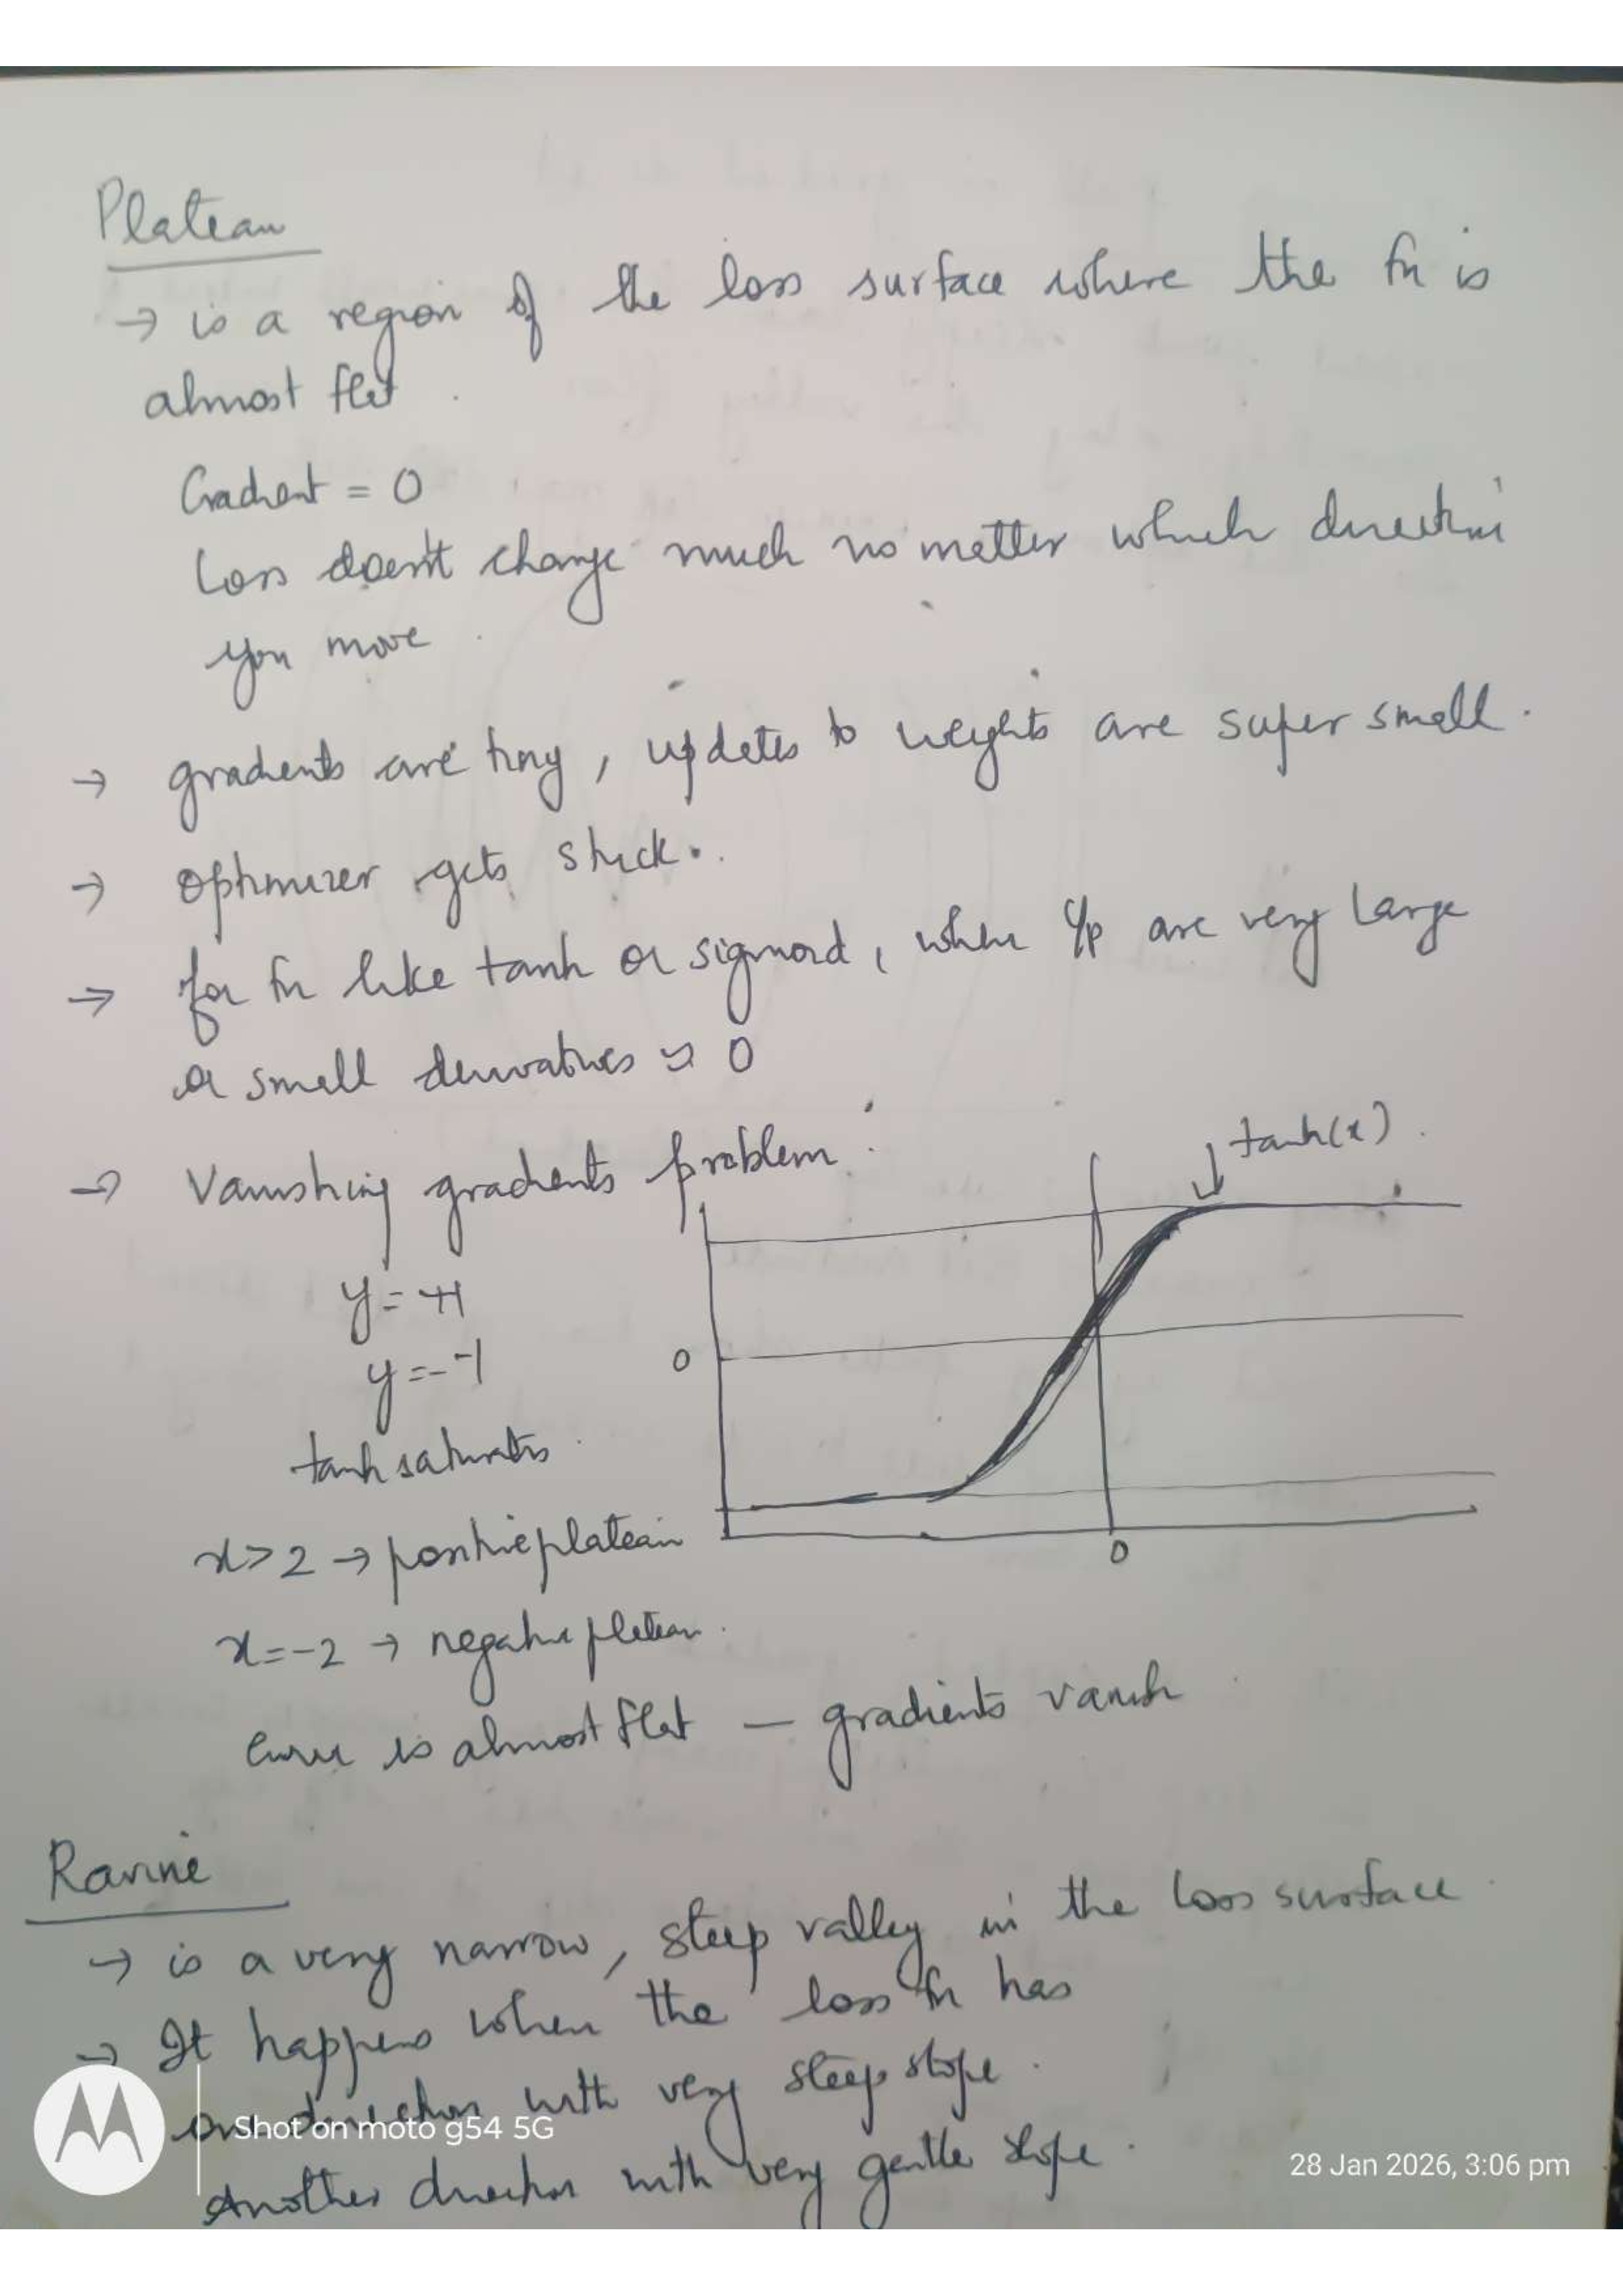 Plateau
→ is a region of the loss surface where the fn is
almost flat.
Gradient = 0
Loss doesn't change much no matter which direction
you move.
→ gradients are tiny, updates to weights are super small.
→ Optimizer gets stuck.
→ for fn like tanh or sigmoid, when i/p are very large
or small derivatives ≈ 0
→ Vanishing gradients problem.
↓ tanh(x).
y = +1
y = -1
0
tanh saturates.
x > 2 → positive plateau
0
x = -2 → negative plateau.
Curve is almost flat — gradients vanish
Ravine
→ is a very narrow, steep valley in the loss surface.
→ It happens when the loss fn has
one direction with very steep slope.
Shot on moto g54 5G
28 Jan 2026, 3:06 pm
Another direction with very gentle slope.